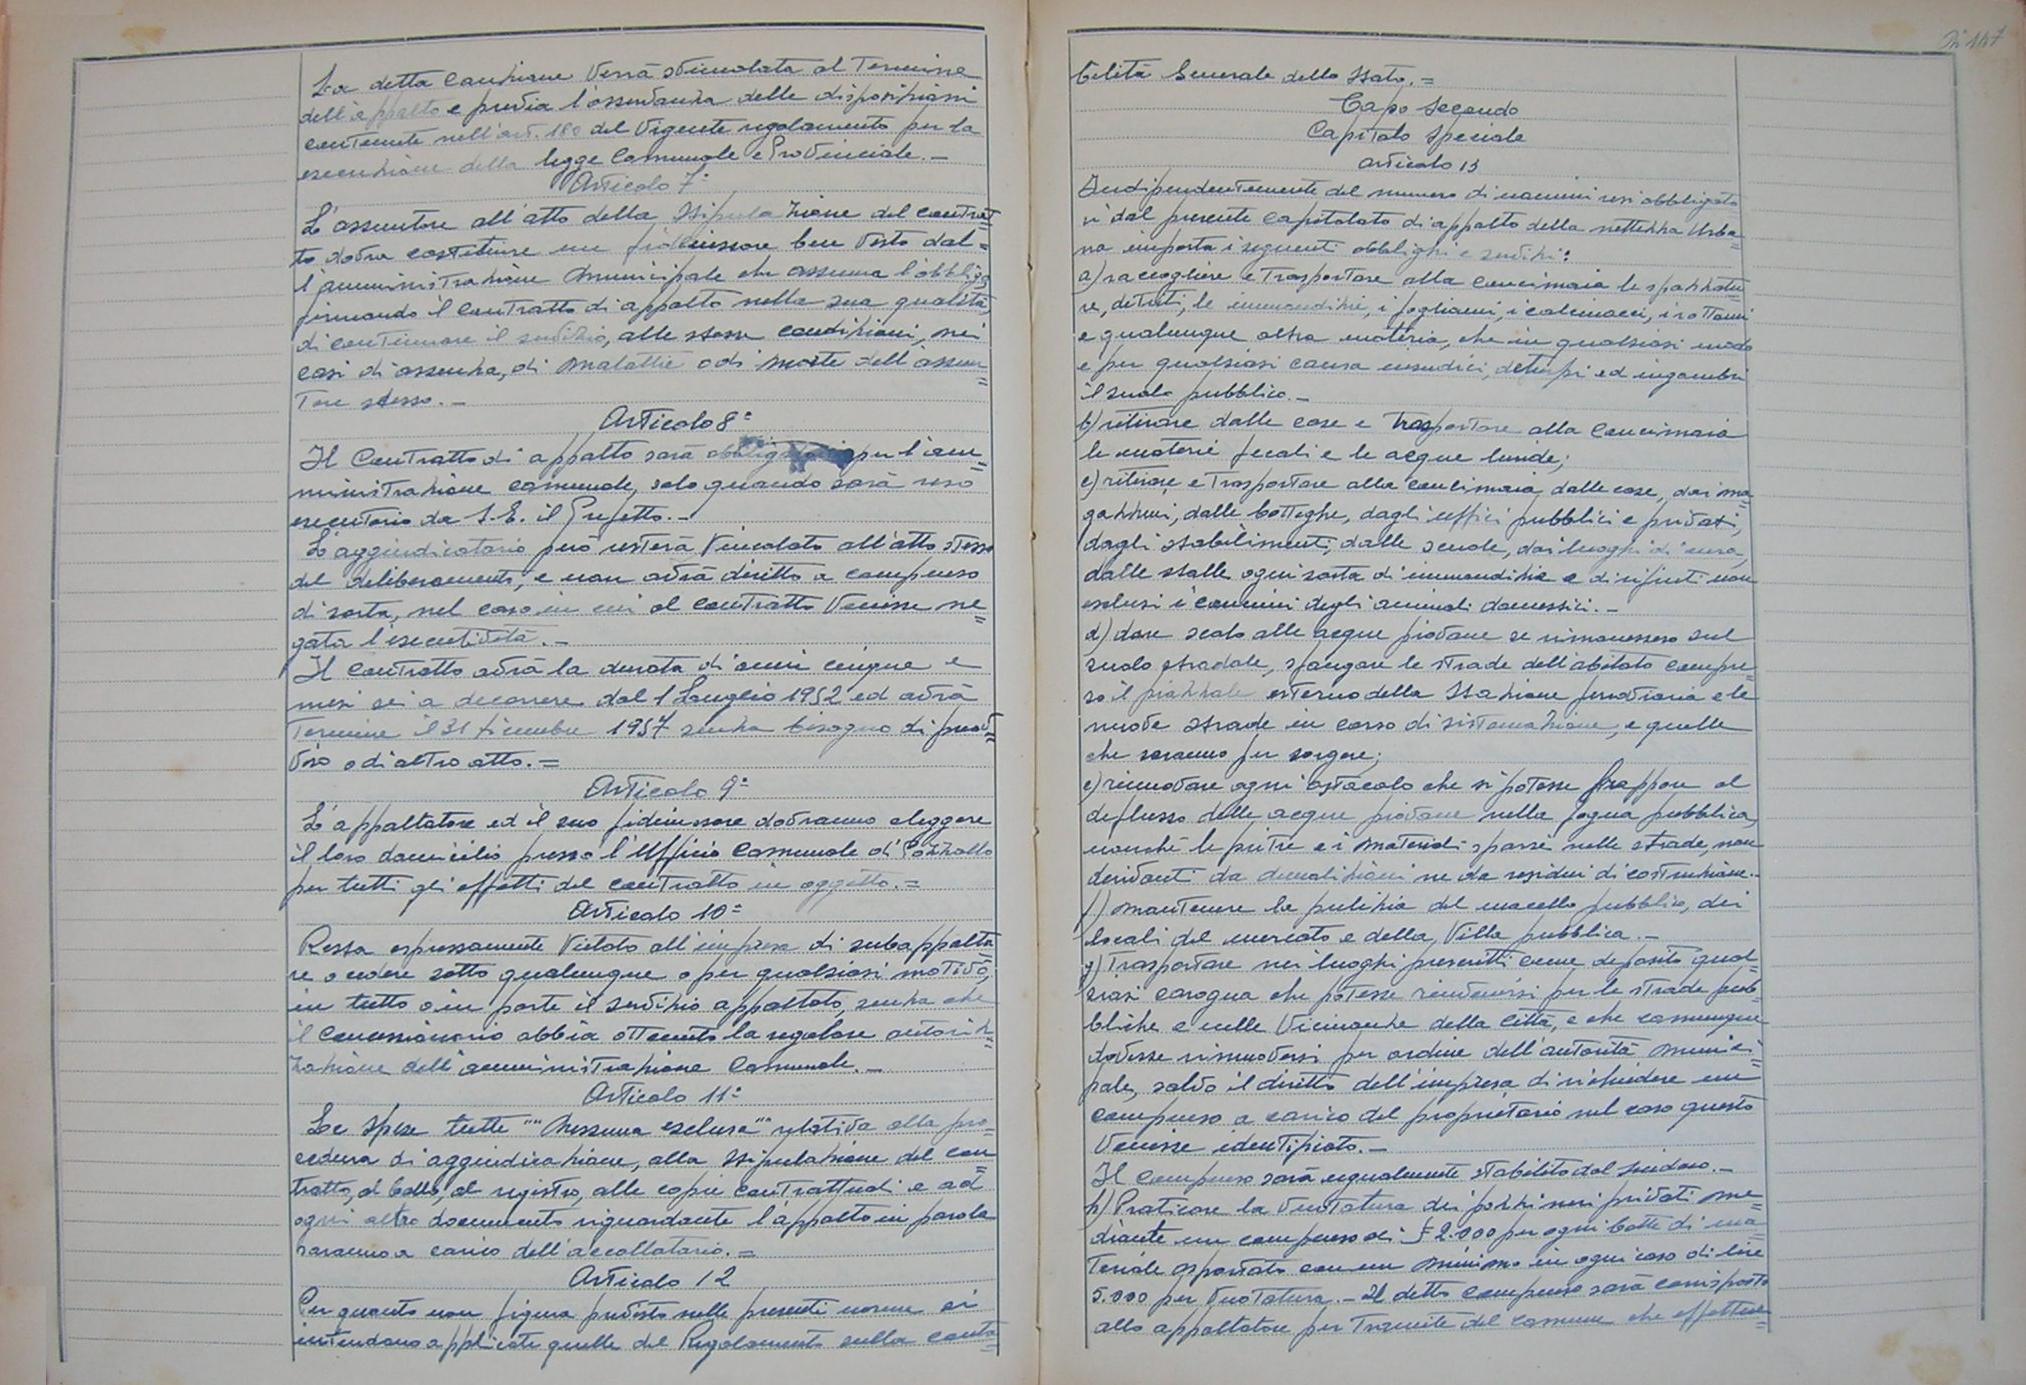 La detta cauzione verrà svincolata al termine
dell'appalto e previa l'osservanza delle disposizioni
contenute nell'art. 180 del vigente regolamento per la
esecuzione della legge Comunale e Provinciale.-
Articolo 7°
L'assuntore all'atto della stipulazione del contrat=
to dovrà costituire un fideiussore ben visto dal=
l'amministrazione Municipale che assuma l'obbligo
firmando il contratto di appalto nella sua qualità,
di continuare il servizio, alle stesse condizioni, nei
casi di assenza, di malattie o di morte dell'assun=
tore stesso.-
Articolo 8°
Il Contratto di appalto sarà per l'am=
ministrazione comunale, solo quando sarà reso
esecutorio da S.E. il Prefetto.-
L'aggiudicatario però resterà vincolato all'atto stesso
del deliberamento, e non avrà diritto a compenso
di sorta, nel caso in cui al contratto venisse ne=
gata l'esecutività.-
Il contratto avrà la durata di anni cinque e
mesi sei a decorrere dal 1 Luglio 1952 ed avrà
termine il 31 dicembre 1957 senza bisogno di preav=
viso o di altro atto.=
Articolo 9°
L'appaltatore ed il suo fideiussore dovranno eleggere
il loro domicilio presso l'Ufficio Comunale di Pozzallo
per tutti gli effetti del contratto in oggetto.=
Articolo 10°
Resta espressamente vietato all'impresa di subappalta=
re o cedere sotto qualunque o per qualsiasi motivo,
in tutto o in parte il servizio appaltato, senza che
il concessionario abbia ottenuto la regolare autoriz=
zazione dell'amministrazione Comunale.-
Articolo 11°
Le spese tutte "" Nessuna esclusa "" relativa alla pro=
cedura di aggiudicazione, alla stipulazione del con=
tratto, al bollo, al registro, alle copie contrattuali e ad
ogni altro documento riguardante l'appalto in parola
saranno a carico dell'accollatario.=
Articolo 12
Per quanto non figura previsto nelle presenti norme si
intendono applicate quelle del Regolamento sulla conta=
bilità Generale dello Stato.=
Capo secondo
Capitolo speciale
Articolo 13
Indipendentemente del numero di uomini resi obbligato=
ri dal presente capitolato di appalto della nettezza Urba=
na importa i seguenti obblighi e servizi:
a) raccogliere e trasportare alla concimaia le spazzatu=
re, detriti, le immondizie, i fogliami, i calcinacci, i rottami
e qualunque altra materia, che in qualsiasi modo
e per qualsiasi causa insudici, deturpi ed ingombri
il suolo pubblico.-
b) ritirare dalle case e trasportare alla concimaia
le materie fecali e le acque luride;
c) ritirare e trasportare alla concimaia, dalle case, dai ma=
gazzini, dalle botteghe, dagli uffici pubblici e privati,
dagli stabilimenti, dalle scuole, dai luoghi di cura,
dalle stalle ogni sorta di immondizia e di rifiuti non
esclusi i concimi degli animali domestici.-
d) dare scolo alle acque piovane se rimanessero sul
suolo stradale, spangare le strade dell'abitato compre=
so il piazzale esterno della Stazione ferroviaria e le
nuove strade in corso di sistemazione, e quelle
che saranno per sorgere;
e) rimuovare ogni ostacolo che si potesse frappore al
deflusso delle acque piovane nella fogna pubblica,
nonchè le pietre e i materiali sparsi nelle strade, non
derivanti da demolizioni ne da residui di costruzione.-
f) mantenere la pulizia del macello pubblico, dei
locali del mercato e della Villa pubblica.-
g) trasportare nei luoghi prescritti come deposito qual=
siasi carogna che potesse rinvenirsi per le strade pub=
bliche e nelle vicinanze della Città, e che comunque
dovesse rimuoversi per ordine dell'autorità munici=
pale, salvo il diritto dell'impresa di richiedere un
compenso a carico del proprietario nel caso questo
venisse identificato.-
Il compenso sarà egualmente stabilito dal sindaco.-
h) Praticare la vuotatura dei pozzi neri privati me=
diante un compenso di £ 2.000 per ogni botte di ma=
teriale asportato con un minimo in ogni caso di lire
5.000 per vuotatura.- Il detto compenso sarà corrisposto
allo appaltatore per tramite del comune che effettue=